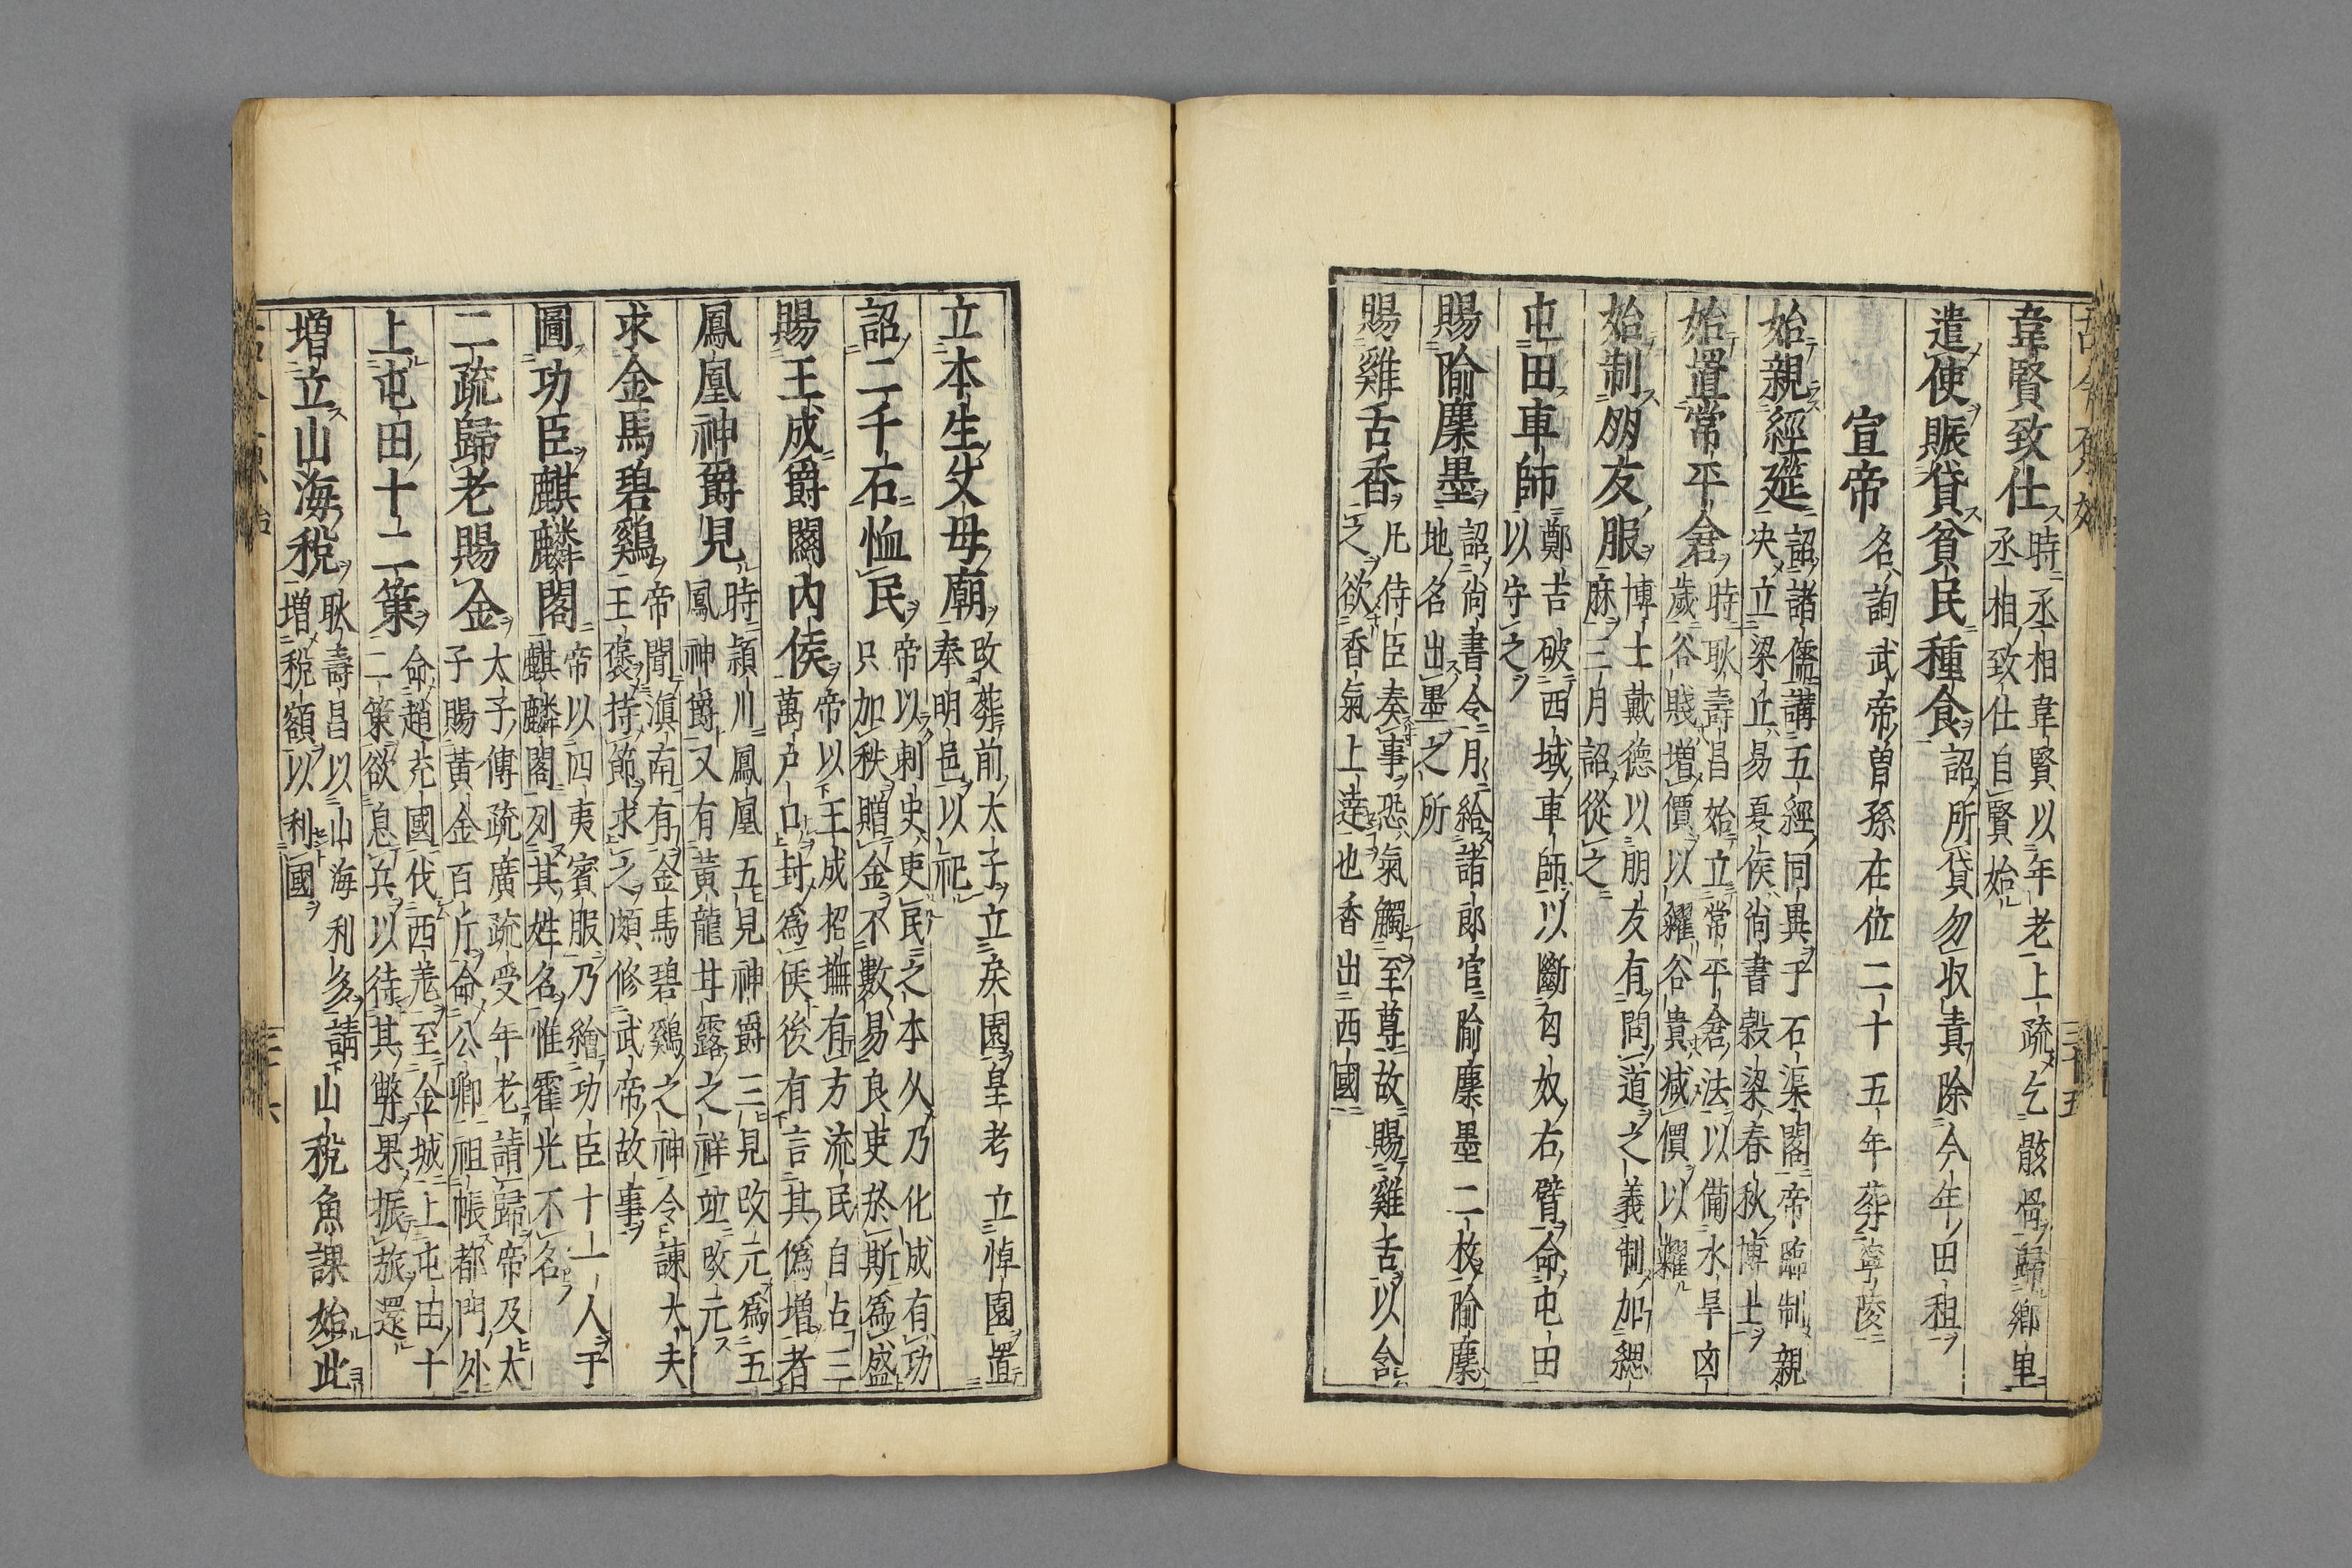 韋賢致仕 時丞相韋賢以年老上疏乞骸骨歸鄉里
丞相致仕自賢始
遣使賑貸貧民種食 詔所貸勿収責除今年田租
宣帝 名詢武帝曽孫在位二十五年葬
始親經筵 詔諸儒講五經同異于石渠閣帝臨制親
决立梁丘易夏侯尚書穀梁春秋博士
始置常平倉 時耿壽昌始立常平倉法以備水旱凶
歲谷賤増價以糴谷貴减價以糶
始制朋友服 博士戴德以朋友有問道之義制加緦
麻三月詔從之
屯田車師 鄭吉破西域車師以斷匈奴右臂命屯田
以守之
賜隃麋墨 詔尚書令月給諸郎官隃麋墨二枚隃麋
地名出墨之所
賜雞舌香 凡侍臣奏事恐氣觸至尊故賜雞舌以含
之欲香氣上達也香出西國
立本生父母廟 改葬前太子立戾園皇考立悼園置
奉明邑以祀
詔二千石恤民 帝以刺史吏民之本久乃化成有功
只加秩贈金不數易良吏於斯爲盛
賜王成爵關內侯 帝以王成招撫有方流民自占三
萬户口封爲侯後有言其僞增者
鳳凰神爵見 時潁川鳳凰五見神爵三見改元爲五
鳳神爵又有黃龍甘露之祥竝改元
求金馬碧鷄 帝聞滇南有金馬碧鷄之神令諫大夫
王褒持節求之頗修武帝故事
圖功臣麒麟閣 帝以四夷賓服乃繪功臣十一人于
麒麟閣列其姓名惟霍光不名
二疏歸老賜金 太子傅疏廣疏受年老請歸帝及太
子賜黃金百斤命公卿祖帳都門外
上屯田十二策 命趙充國伐西羌至金城上屯田十
二策欲息兵以待其弊果振旅還
増立山海稅 耿壽昌以山海利多請山稅魚課始此
増稅額以利國